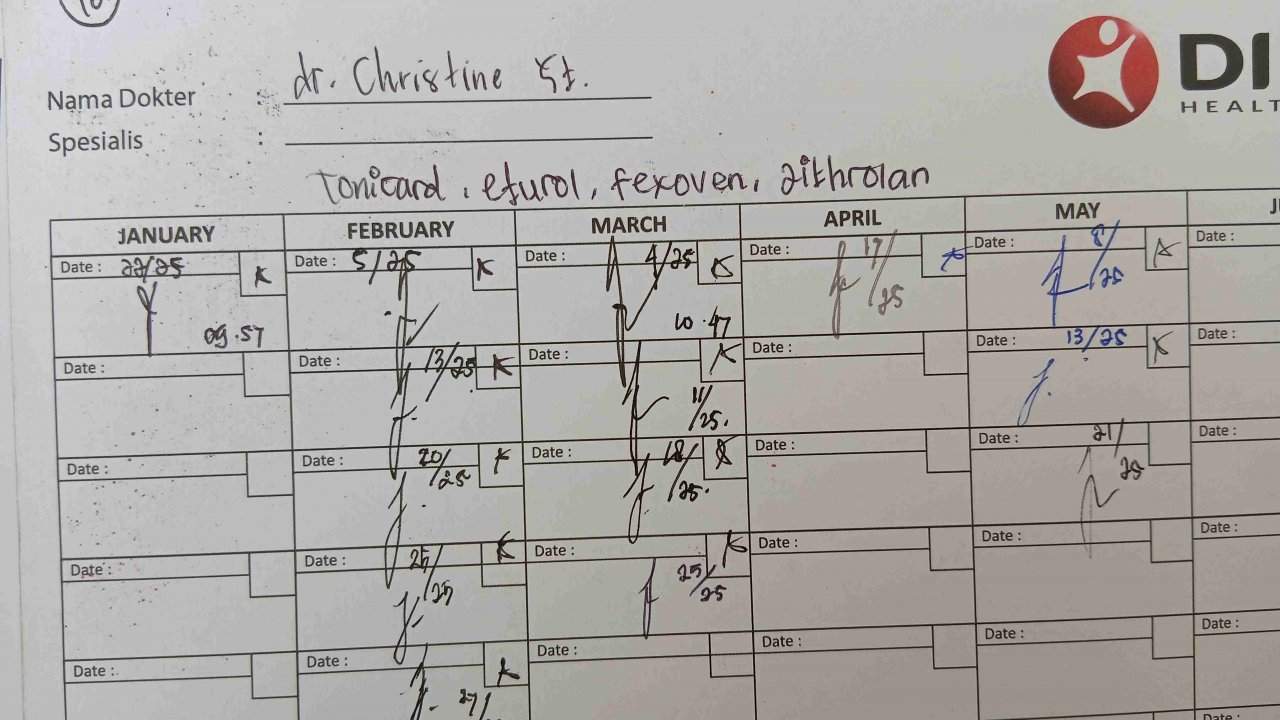 10
Nama Dokter : dr. Christine St.
DI
HEALT
Spesialis :
Tonicard, efurol, fexoven, zithrolan
JANUARY FEBRUARY MARCH APRIL MAY
Date : 22/25 K Date : 5/25 K Date : 4/25 K Date : 17/25 K Date : 8/25 K Date :
09.57 10.47
Date : Date : 13/25 K Date : 11/25. K Date : Date : 13/25 K Date :
Date : Date : 20/25 K Date : 18/25. Date : Date : 21/25 Date :
Date : Date : 25/25 K Date : 25/25 K Date : Date : Date :
Date : Date : 27/ K Date : Date : Date : Date :